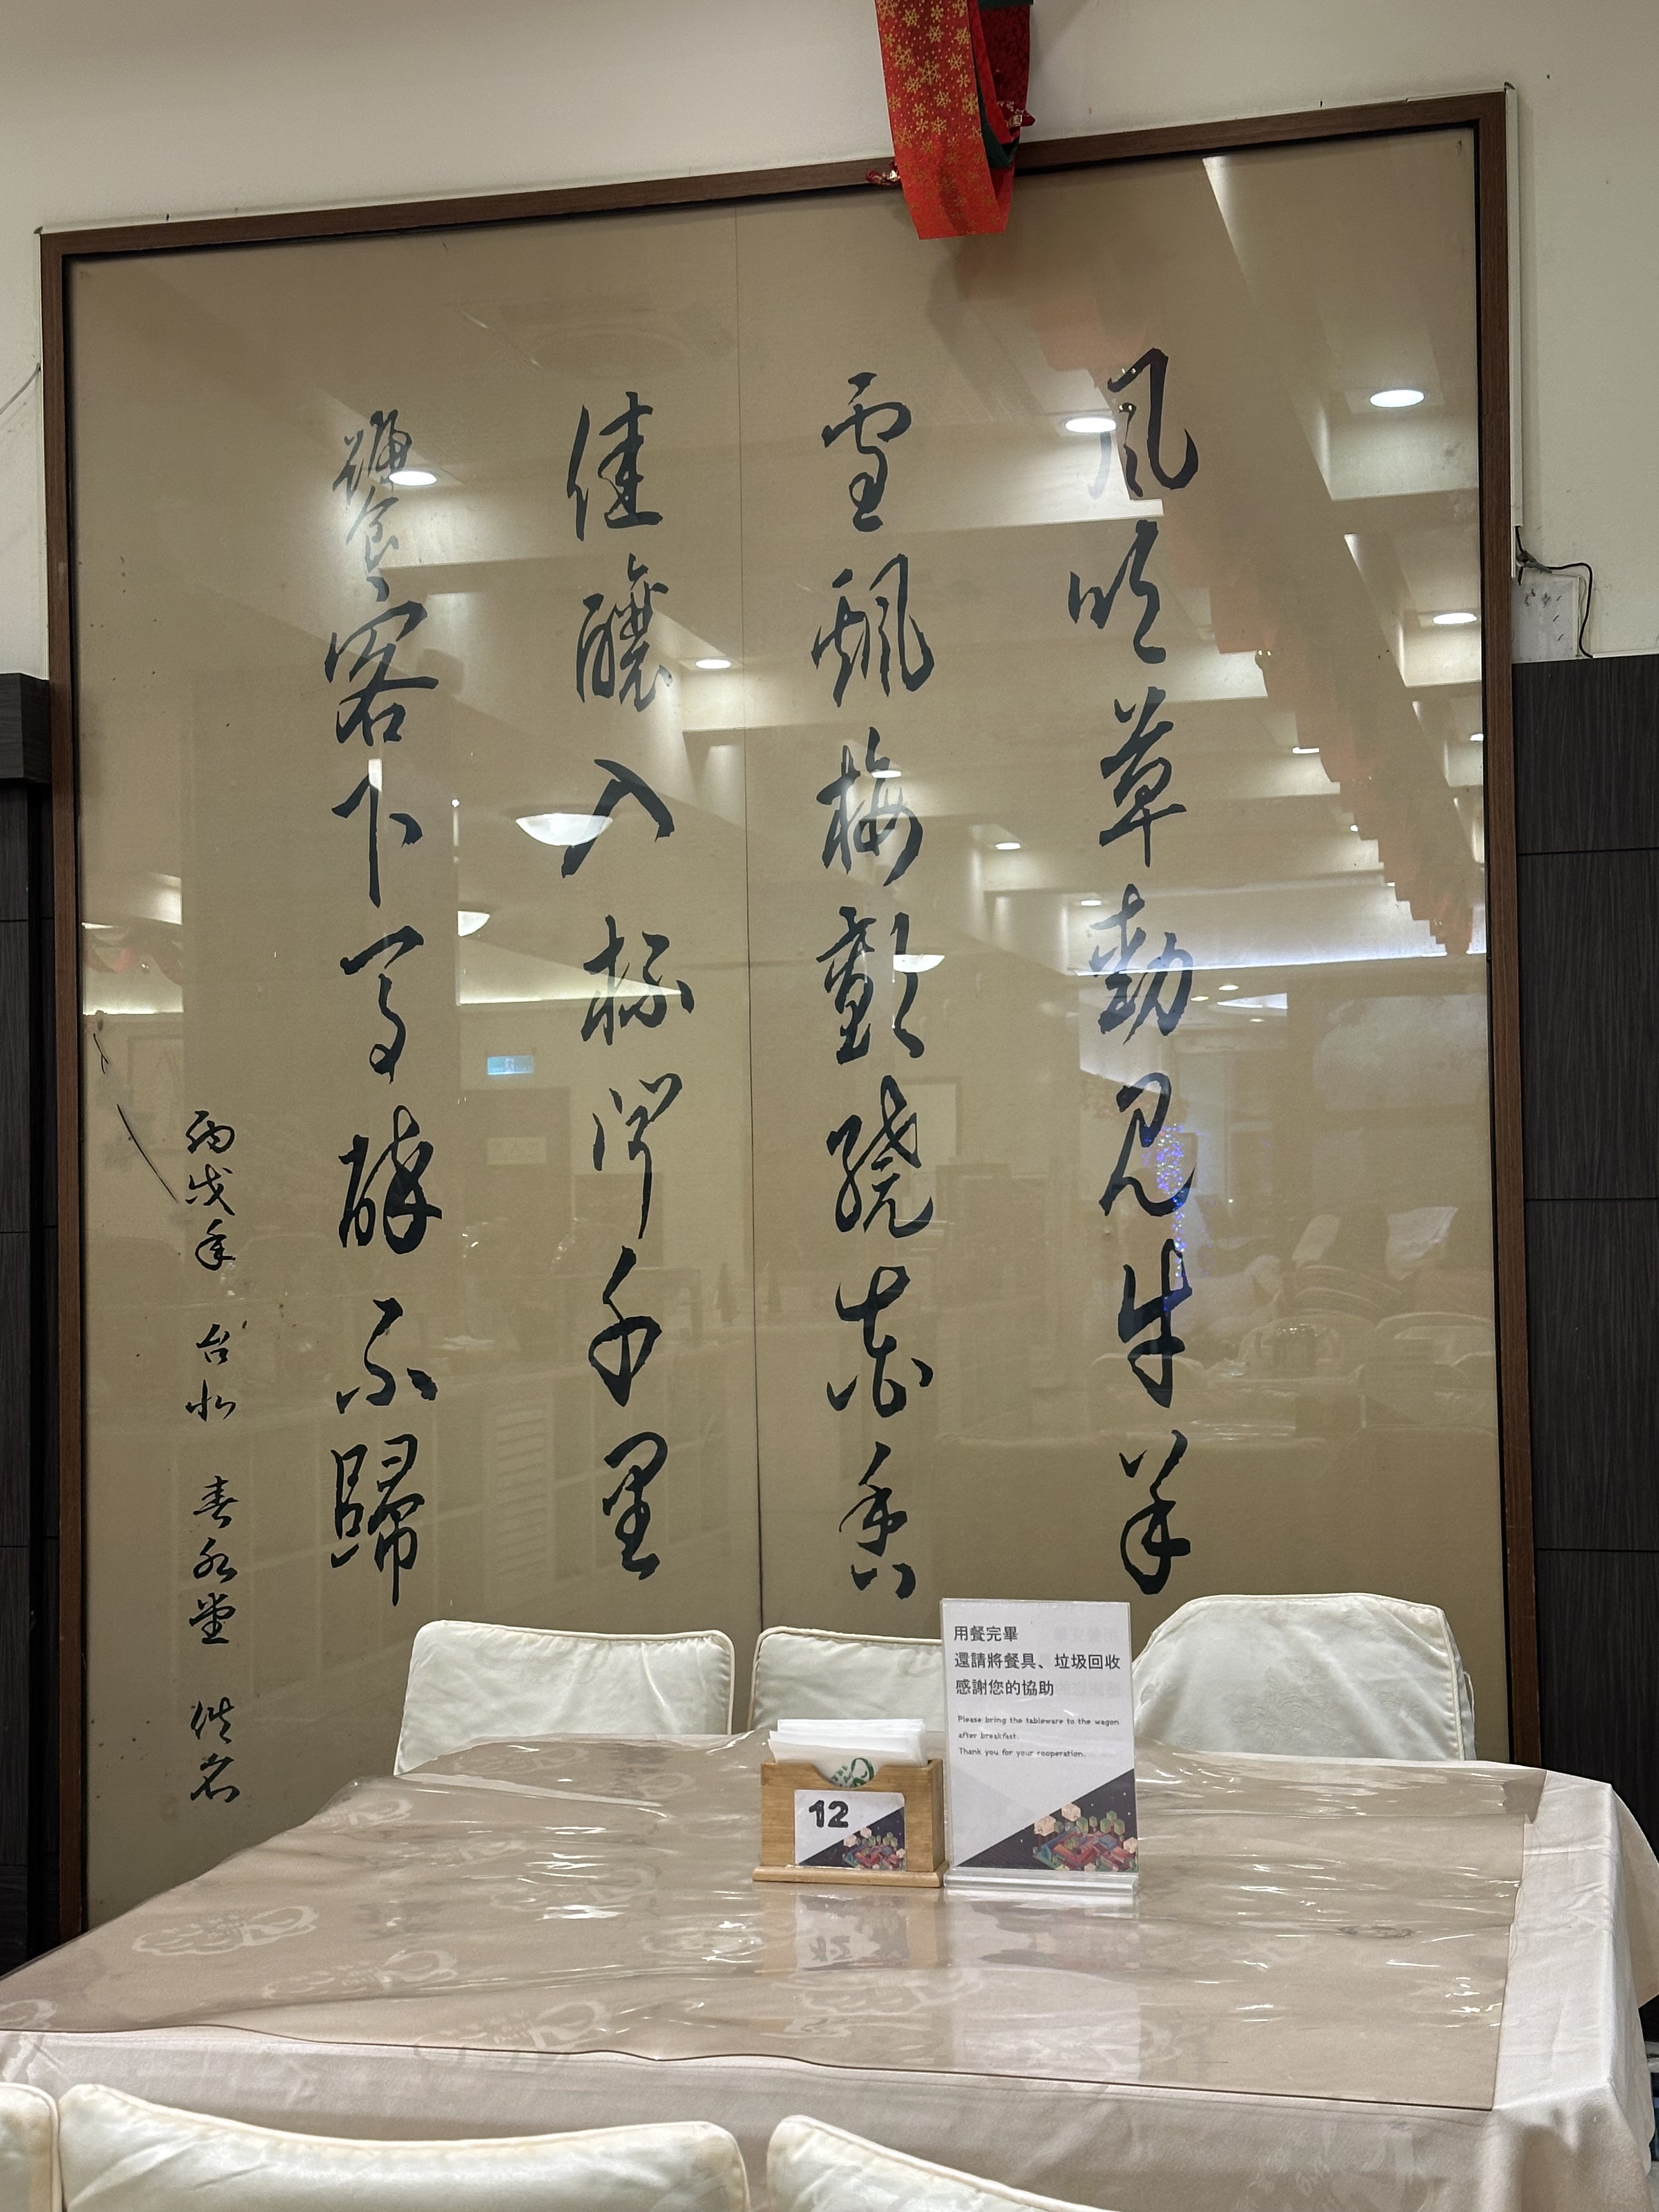 風吹草動見牛羊
雪飄梅繞香
佳釀入杯聞千里
饗客下馬醉不歸
丙戌年 台北 春堂 佚名
用餐完畢
還請將餐具、垃圾回收
感謝您的協助
Please bring the tableware to the wagon
after breakfast.
Thank you for your cooperation.
12